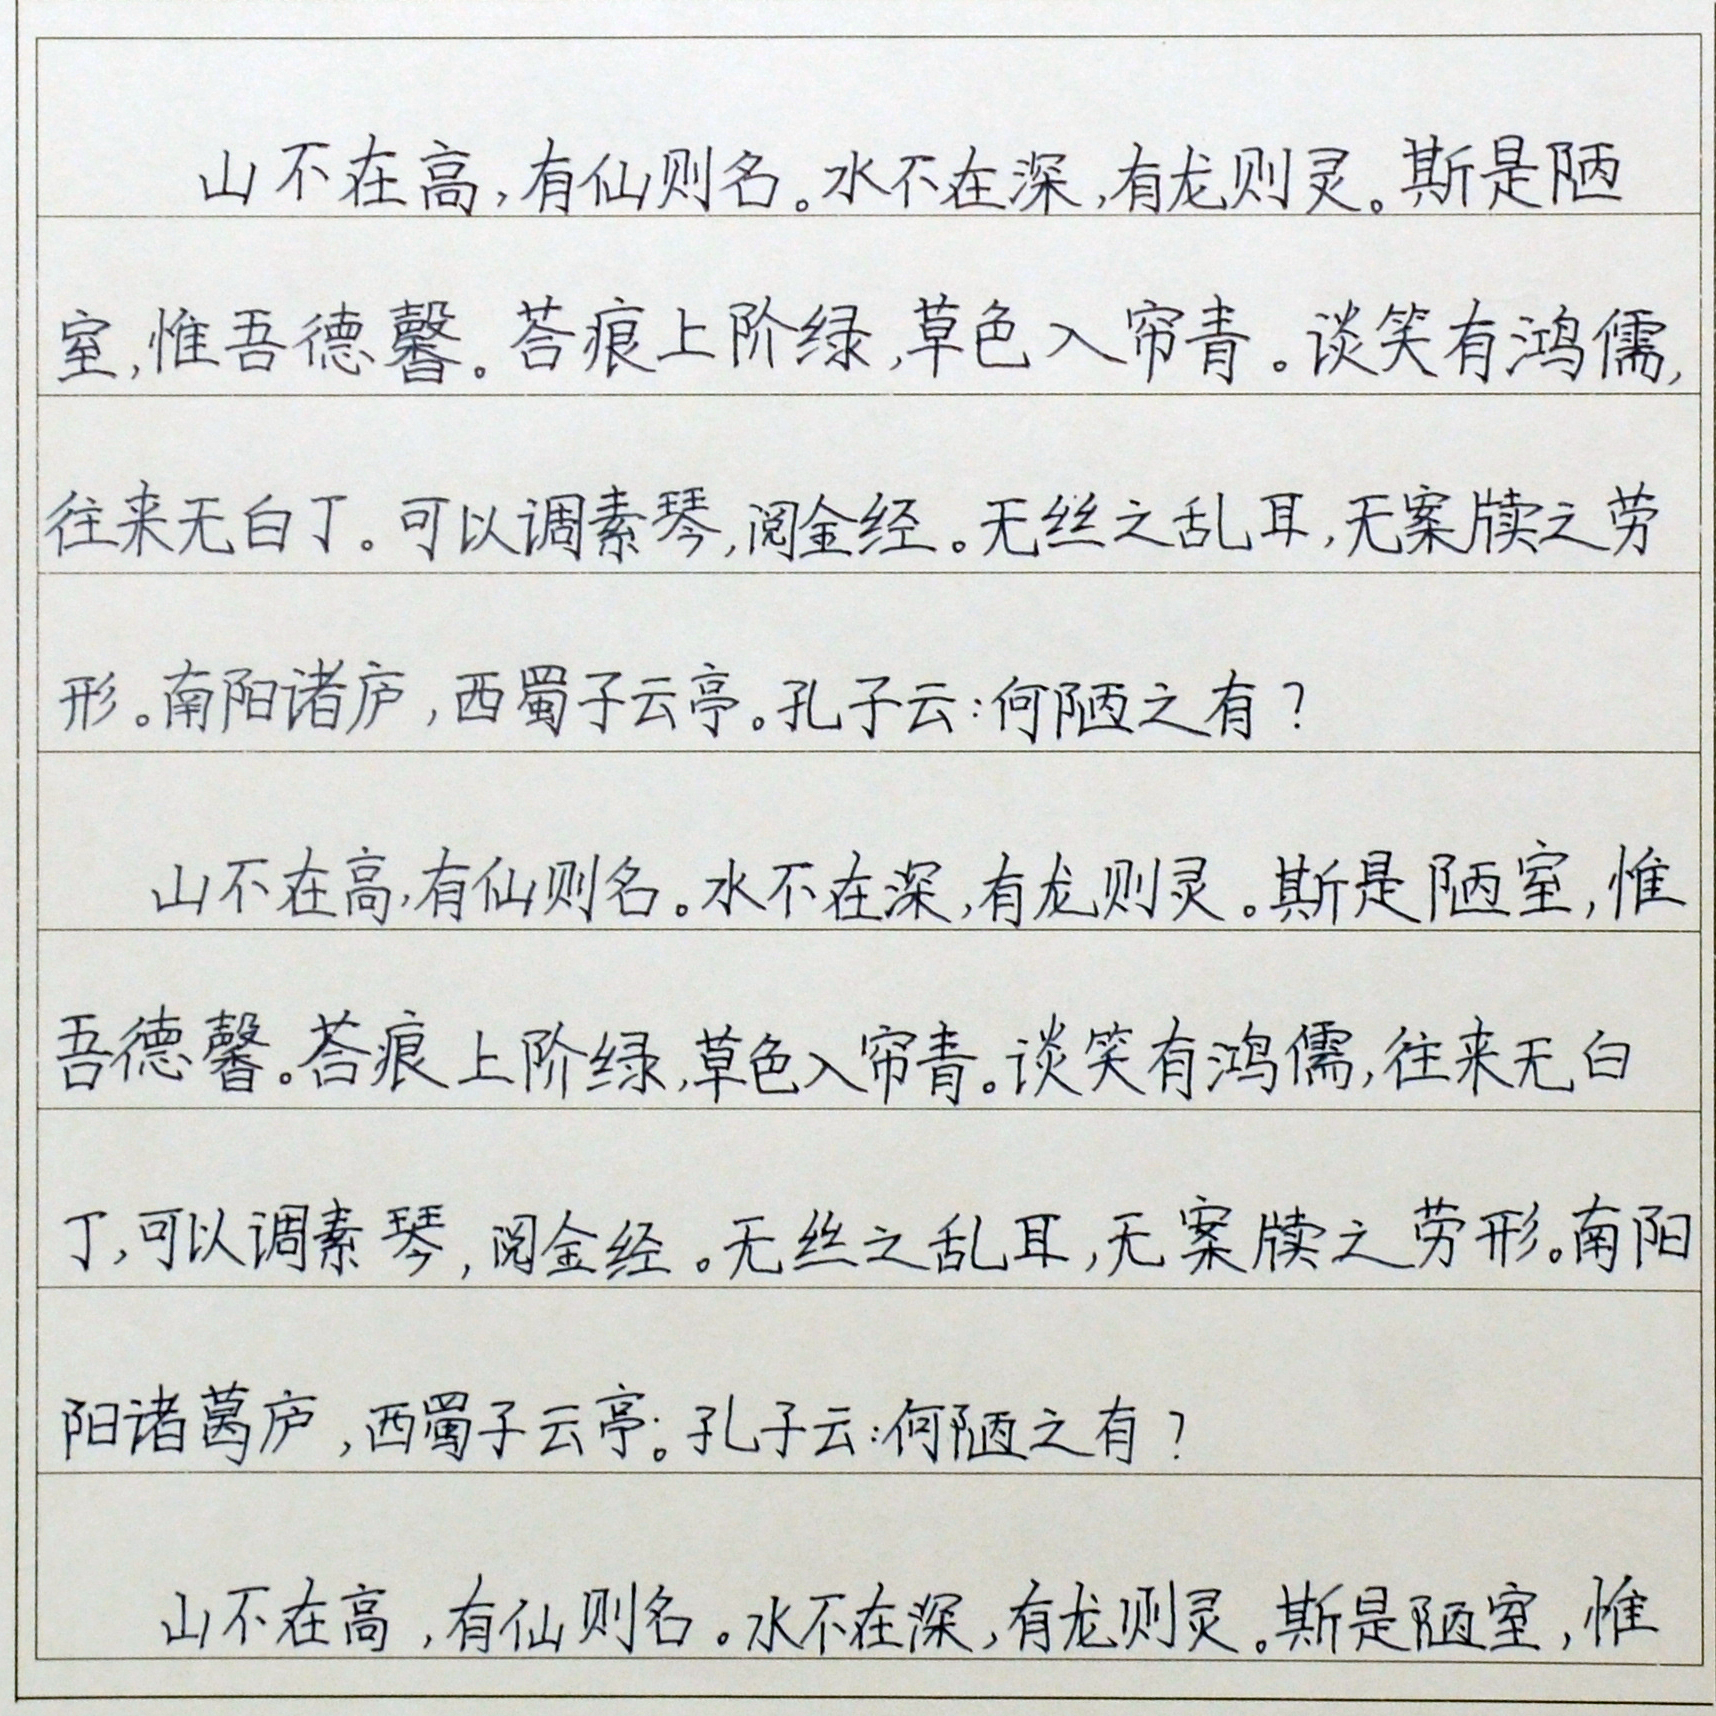 山不在高,有仙则名。水不在深,有龙则灵。斯是陋
室,惟吾德馨。苔痕上阶绿,草色入帘青。谈笑有鸿儒,
往来无白丁。可以调素琴,阅金经。无丝之乱耳,无案牍之劳
形。南阳诸庐,西蜀子云亭。孔子云:何陋之有?
山不在高,有仙则名。水不在深,有龙则灵。斯是陋室,惟
吾德馨。苔痕上阶绿,草色入帘青。谈笑有鸿儒,往来无白
丁,可以调素琴,阅金经。无丝之乱耳,无案牍之劳形。南阳
阳诸葛庐,西蜀子云亭。孔子云:何陋之有?
山不在高,有仙则名。水不在深,有龙则灵。斯是陋室,惟